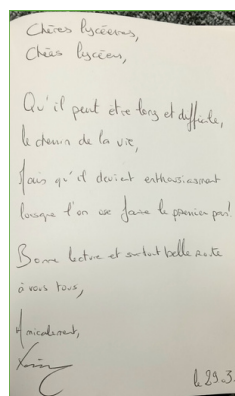 Chères lycéennes,
Chers lycéens,
Qu'il peut être long et difficile,
le chemin de la vie,
Mais qu'il devient enthousiasmant
lorsque l'on ose faire le premier pas!
Bonne lecture et surtout belle route
à vous tous,
Amicalement,
le 29.3.